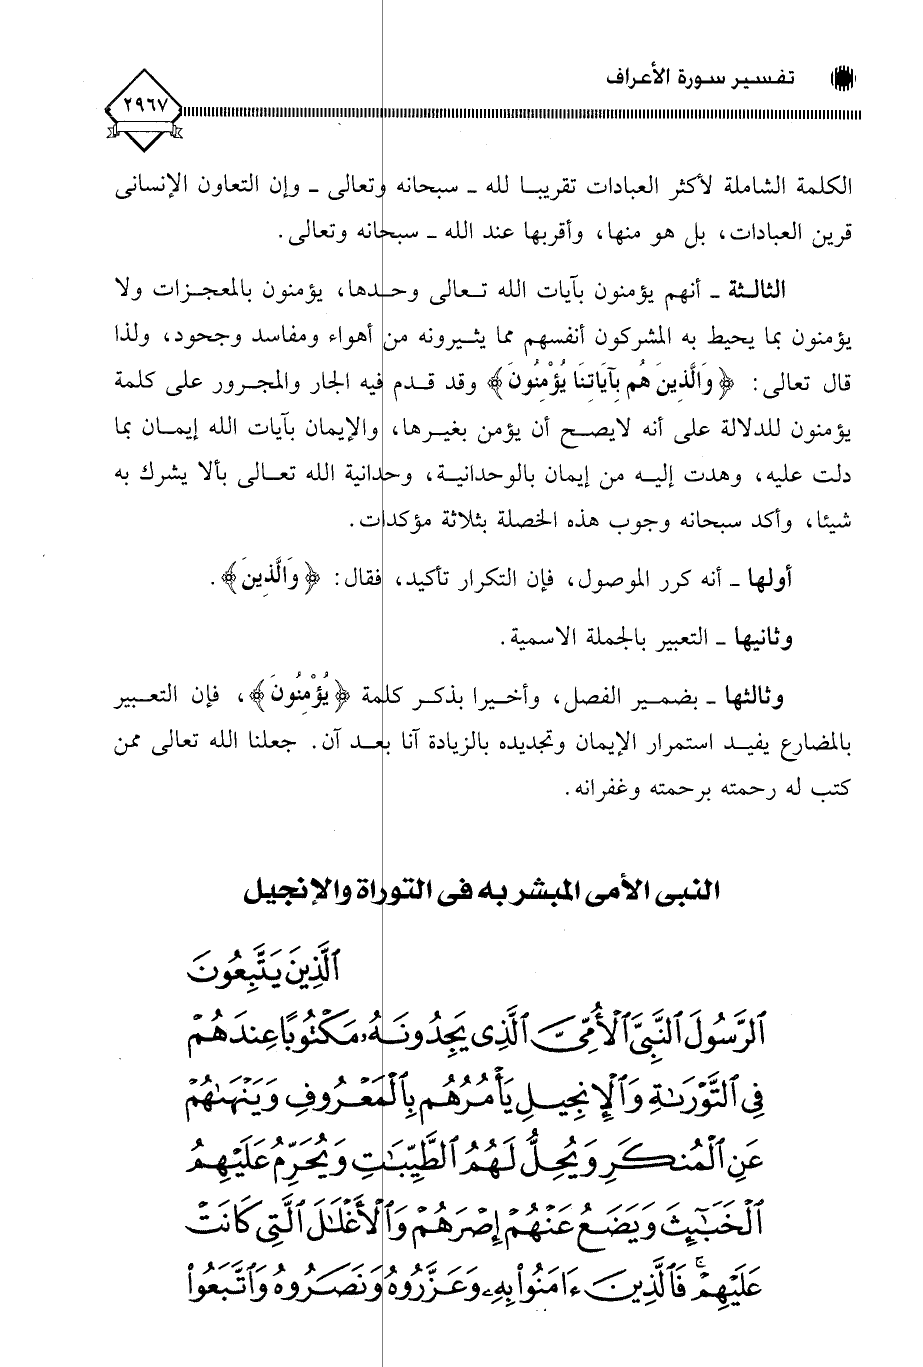 تفسير سورة الأعراف
٢٩٦٧
الكلمة الشاملة لأكثر العبادات تقريبا لله ـ سبحانه وتعالى ـ وإن التعاون الإنسانى
قرين العبادات، بل هو منها، وأقربها عند الله ـ سبحانه وتعالى.
الثالثة ـ أنهم يؤمنون بآيات الله تعالى وحدها، يؤمنون بالمعجزات ولا
يؤمنون بما يحيط به المشركون أنفسهم مما يثيرونه من أهواء ومفاسد وجحود، ولذا
قال تعالى: ﴿وَالَّذِينَ هُم بِآيَاتِنَا يُؤْمِنُونَ﴾ وقد قدم فيه الجار والمجرور على كلمة
يؤمنون للدلالة على أنه لايصح أن يؤمن بغيرها، والإيمان بآيات الله إيمان بما
دلت عليه، وهدت إليه من إيمان بالوحدانية، وحدانية الله تعالى بألا يشرك به
شيئا، وأكد سبحانه وجوب هذه الخصلة بثلاثة مؤكدات.
أولها ـ أنه كرر الموصول، فإن التكرار تأكيد، فقال: ﴿وَالَّذِينَ﴾.
وثانيها ـ التعبير بالجملة الاسمية.
وثالثها ـ بضمير الفصل، وأخيرا بذكر كلمة ﴿يُؤْمِنُونَ﴾، فإن التعبير
بالمضارع يفيد استمرار الإيمان وتجديده بالزيادة آنا بعد آن. جعلنا الله تعالى ممن
كتب له رحمته برحمته وغفرانه.
النبى الأمى المبشر به فى التوراة والإنجيل
ٱلَّذِينَ يَتَّبِعُونَ
ٱلرَّسُولَ ٱلنَّبِىَّ ٱلْأُمِّىَّ ٱلَّذِى يَجِدُونَهُۥ مَكْتُوبًا عِندَهُمْ
فِى ٱلتَّوْرَىٰةِ وَٱلْإِنجِيلِ يَأْمُرُهُم بِٱلْمَعْرُوفِ وَيَنْهَىٰهُمْ
عَنِ ٱلْمُنكَرِ وَيُحِلُّ لَهُمُ ٱلطَّيِّبَـٰتِ وَيُحَرِّمُ عَلَيْهِمُ
ٱلْخَبَـٰٓئِثَ وَيَضَعُ عَنْهُمْ إِصْرَهُمْ وَٱلْأَغْلَـٰلَ ٱلَّتِى كَانَتْ
عَلَيْهِمْ ۚ فَٱلَّذِينَ ءَامَنُوا۟ بِهِۦ وَعَزَّرُوهُ وَنَصَرُوهُ وَٱتَّبَعُوا۟